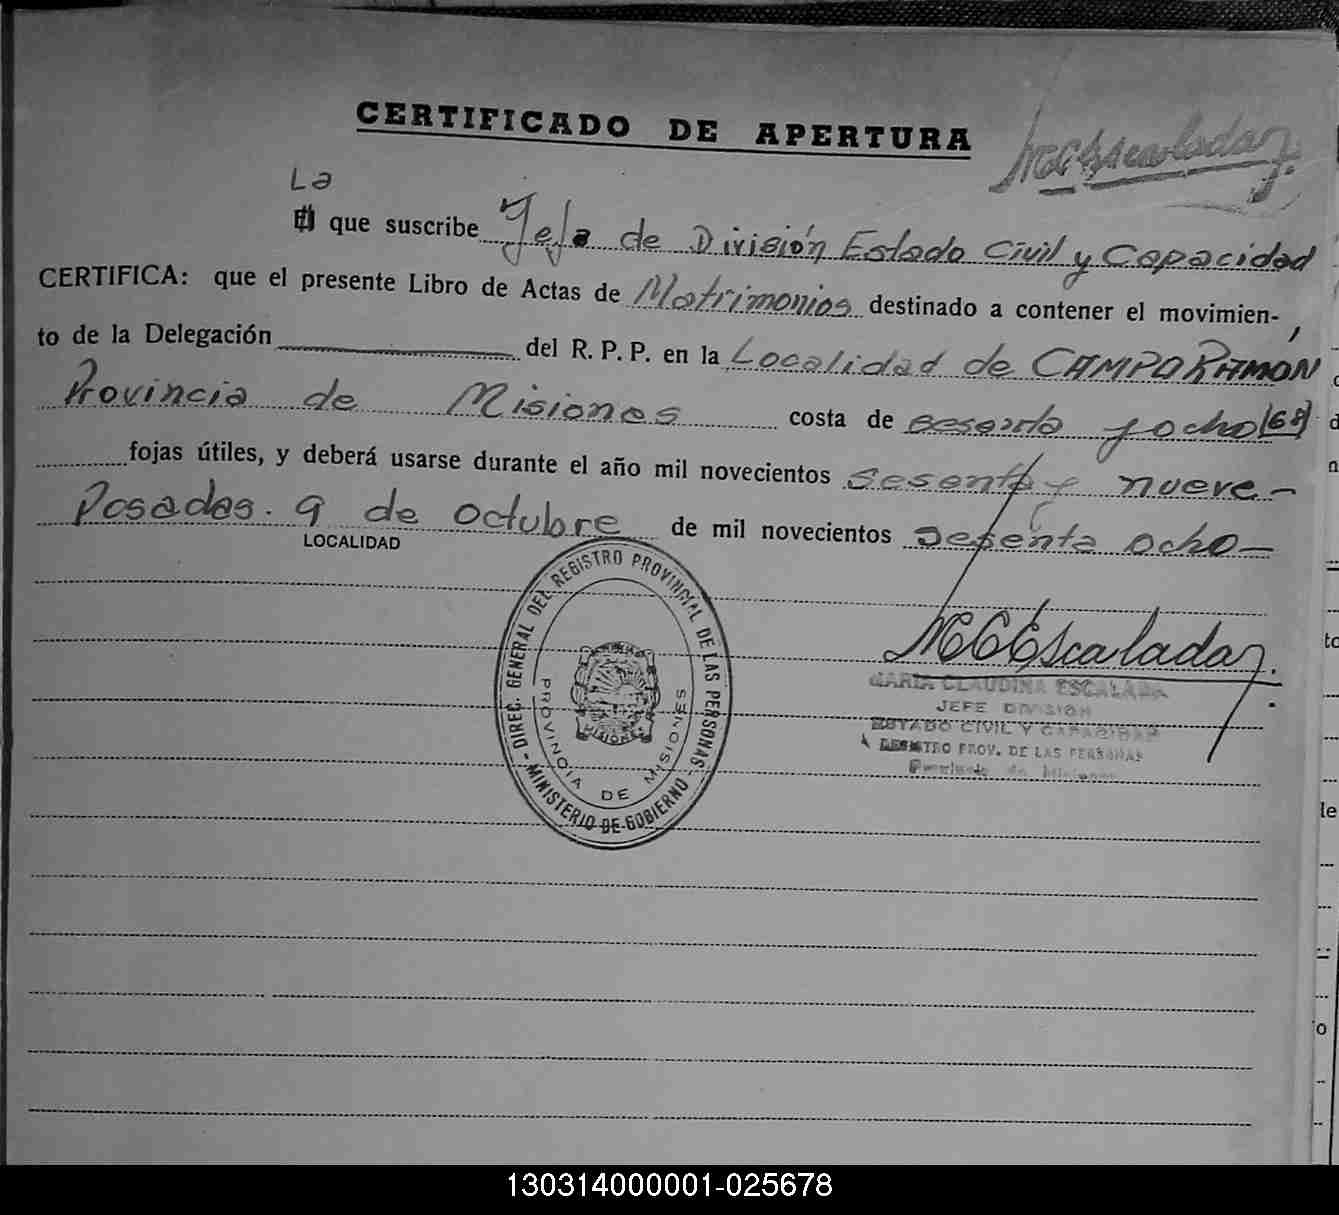 CERTIFICADO DE APERTURA
MCEscalada
La
El que suscribe Jefa de División Estado Civil y Capacidad
CERTIFICA: que el presente Libro de Actas de Matrimonios destinado a contener el movimien-,
to de la Delegación del R. P. P. en la Localidad de CAMPO RAMÓN
Provincia de Misiones costa de sesenta y ocho (68)
fojas útiles, y deberá usarse durante el año mil novecientos sesenta y nueve-
Posadas. 9 de octubre de mil novecientos sesenta ocho-
LOCALIDAD
DIREC. GENERAL DEL REGISTRO PROVINCIAL DE LAS PERSONAS
- MINISTERIO DE GOBIERNO -
PROVINCIA DE MISIONES
MISIONES
MCEscalada
MARIA CLAUDINA ESCALADA
JEFE DIVISION
ESTADO CIVIL Y CAPACIDAD
REGISTRO PROV. DE LAS PERSONAS
Provincia de Misiones
130314000001-025678